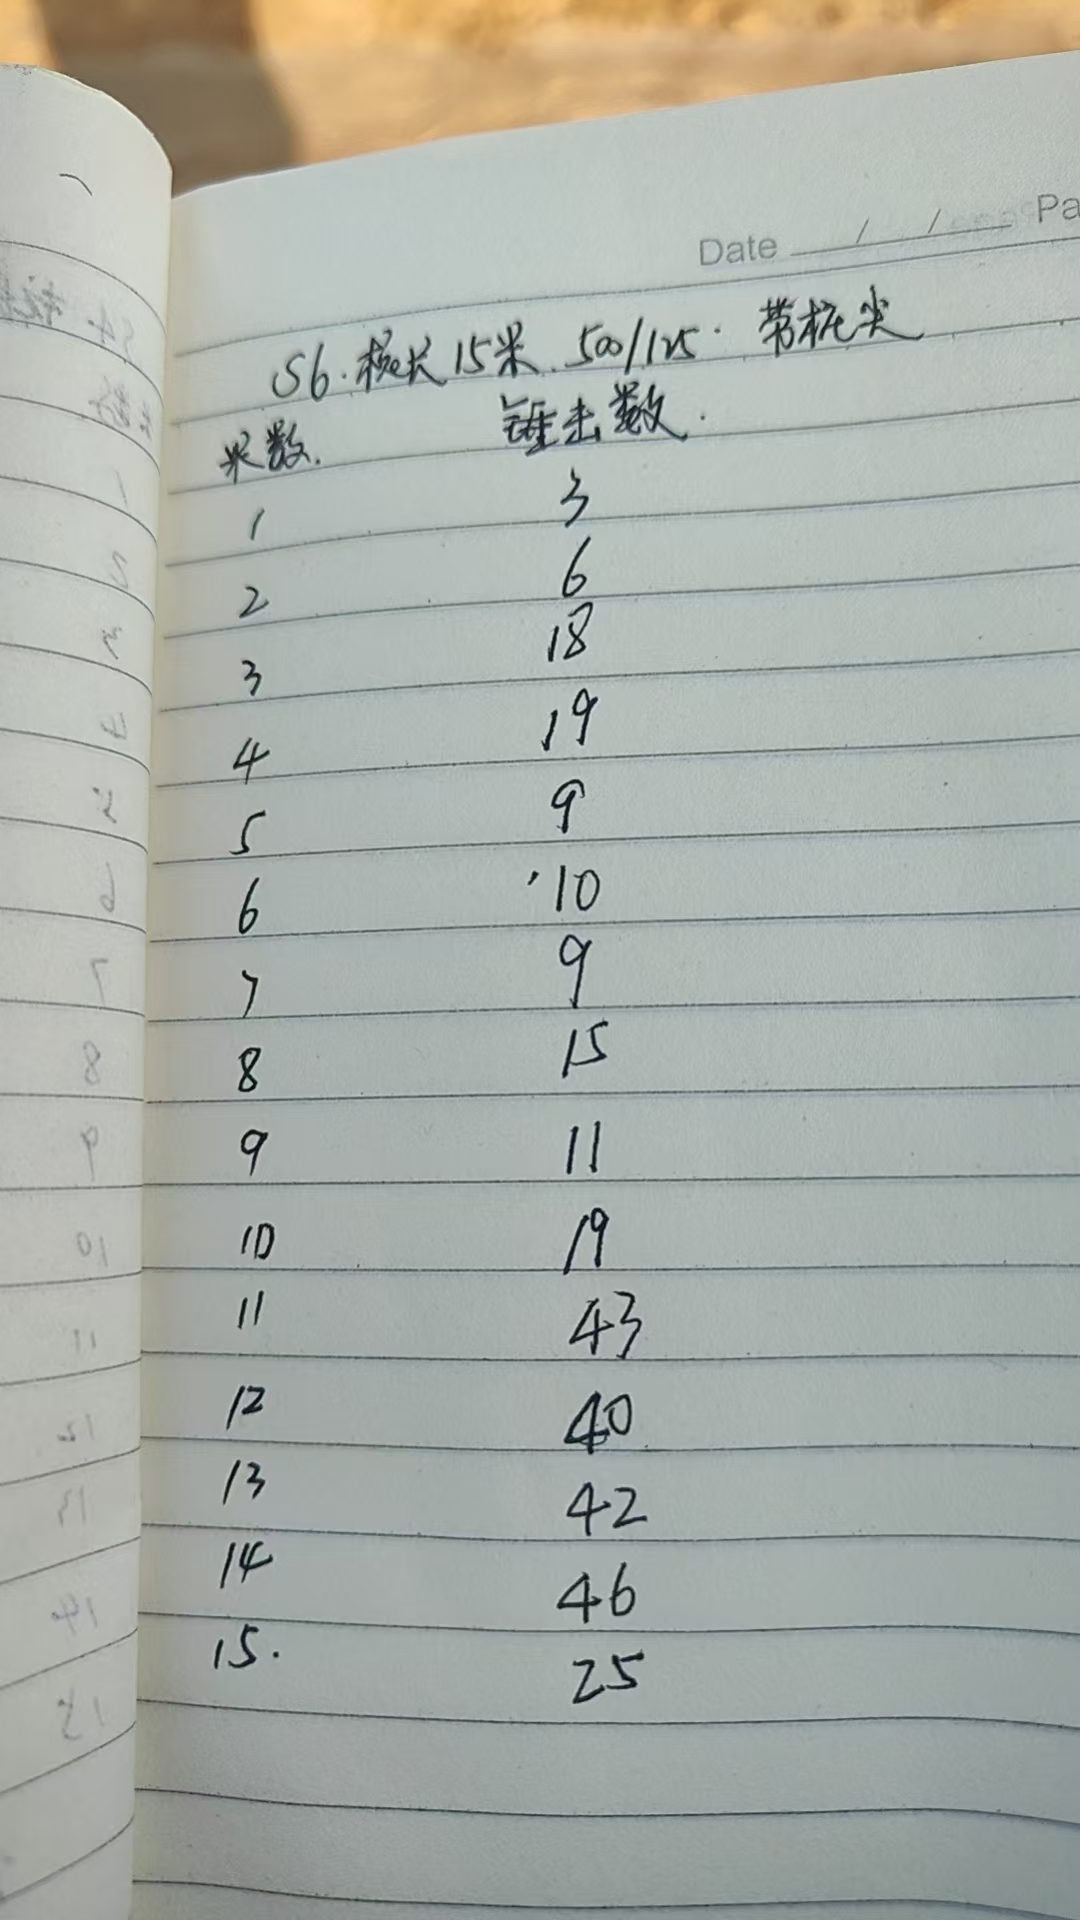 Date / / Pa
S6. 桩长15米. 500/125. 带桩尖
米数. 锤击数.
1 3
2 6
3 18
4 19
5 9
6 10
7 9
8 15
9 11
10 19
11 43
12 40
13 42
14 46
15. 25